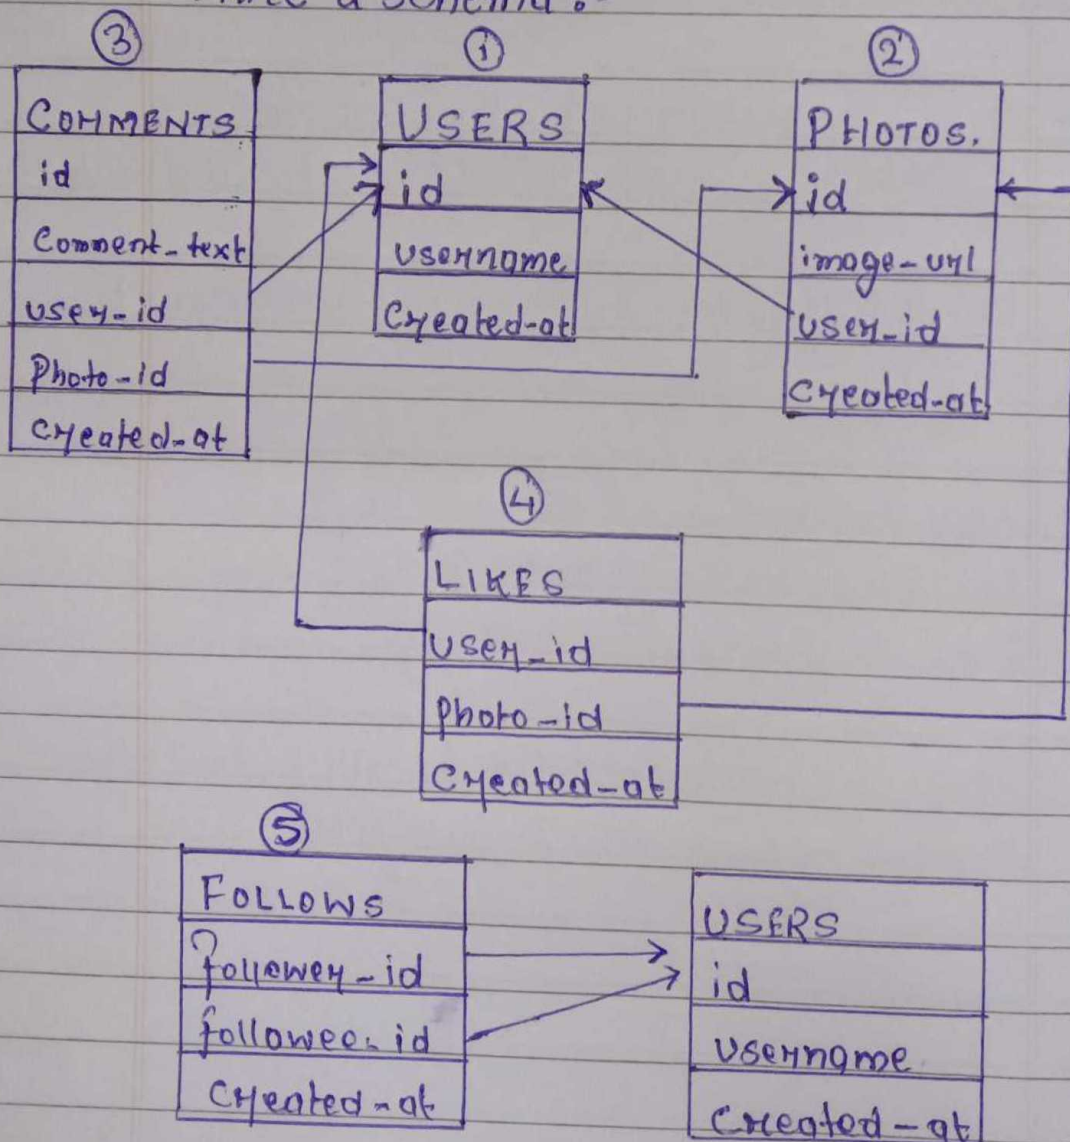 a schema.
③
COMMENTS
id
Comment_text
user_id
Photo_id
created_at
①
USERS
id
username
Created_at
②
PHOTOS.
id
image_url
user_id
Created_at
④
LIKES
user_id
photo_id
Created_at
⑤
FOLLOWS
follower_id
followee_id
Created_at
USERS
id
username
Created_at